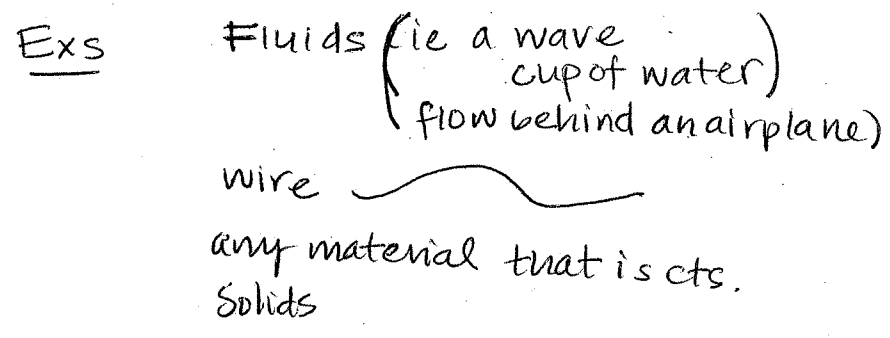 Exs Fluids (ie a wave
cup of water)
(flow behind an airplane)
wire
any material that is cts.
Solids